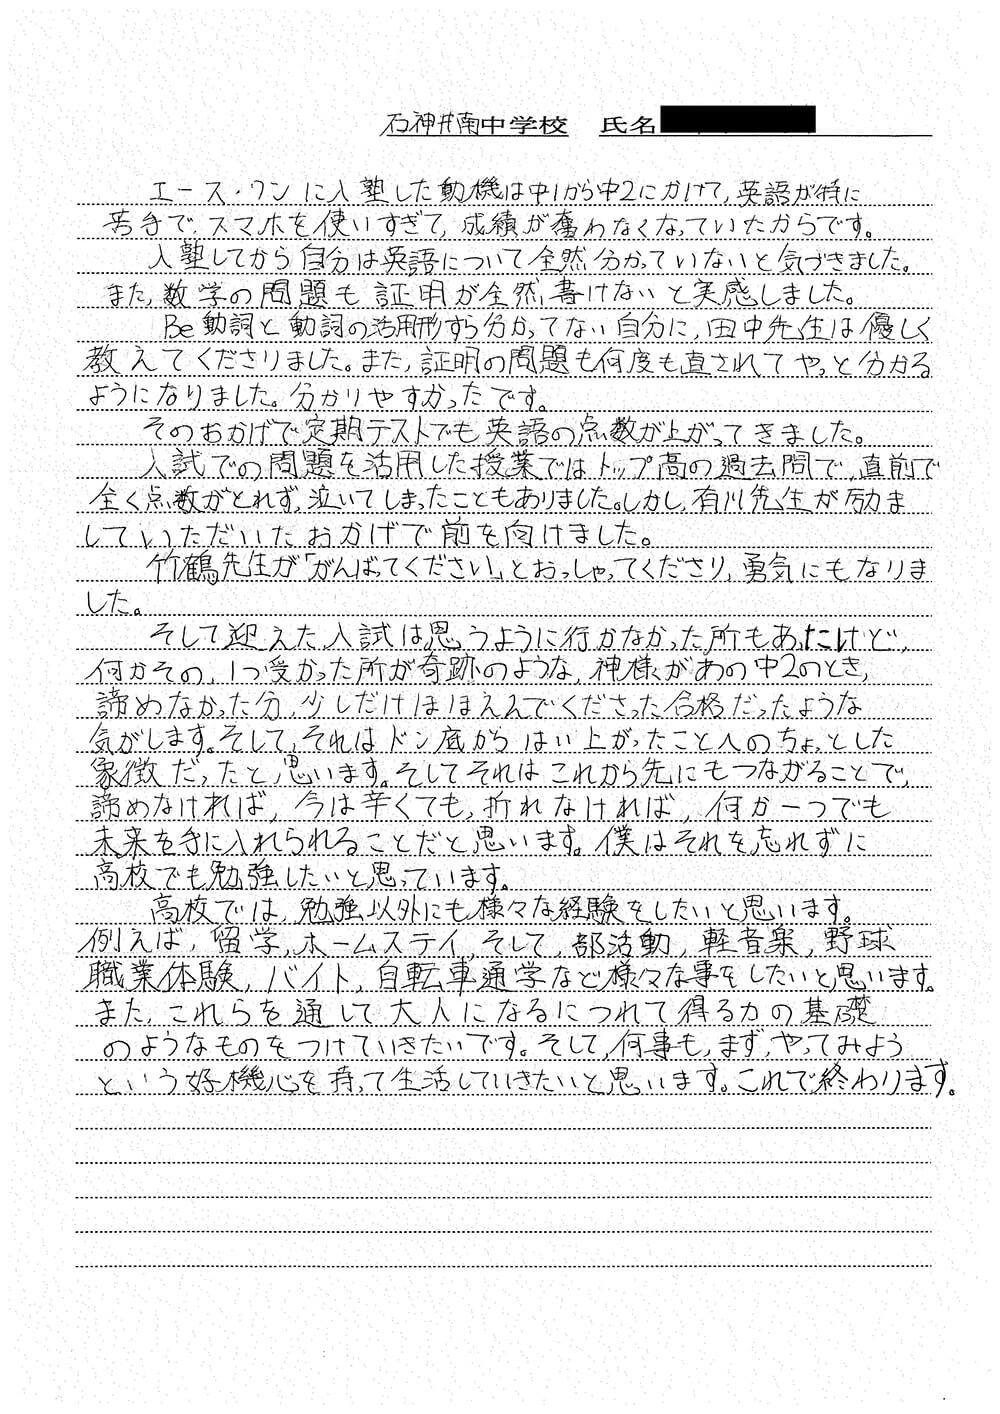 石神井南中学校 氏名
エース・ワンに入塾した動機は中1から中2にかけて、英語が特に
苦手で、スマホを使いすぎて、成績が奮わなくなっていたからです。
入塾してから自分は英語について全然分かっていないと気づきました。
また、数学の問題も証明が全然書けないと実感しました。
Be動詞と動詞の活用形すら分かってない自分に、田中先生は優しく
教えてくださりました。また、証明の問題も何度も直されてやっと分かる
ようになりました。分かりやすかったです。
そのおかげで定期テストでも英語の点数が上がってきました。
入試での問題を活用した授業ではトップ高の過去問で、直前で
全く点数がとれず、泣いてしまったこともありました。しかし、有川先生が励ま
していただいたおかげで前を向けました。
竹鶴先生が「がんばってください」とおっしゃってくださり、勇気にもなりま
した。
そして迎えた入試は思うように行かなかった所もあったけど、
何かその、1つ受かった所が奇跡のような、神様があの中2のとき、
諦めなかった分、少しだけほほえんでくださった合格だったような
気がします。そして、それはドン底からはい上がったことへのちょっとした
象徴だったと思います。そしてそれはこれから先にもつながることで、
諦めなければ、今は辛くても、折れなければ、何か一つでも
未来を手に入れられることだと思います。僕はそれを忘れずに
高校でも勉強したいと思っています。
高校では、勉強以外にも様々な経験をしたいと思います。
例えば、留学、ホームステイ、そして、部活動、軽音楽、野球
職業体験、バイト、自転車通学など様々な事をしたいと思います。
また、これらを通して大人になるにつれて得る力の基礎
のようなものをつけていきたいです。そして、何事も、まず、やってみよう
という好機心を持って生活していきたいと思います。これで終わります。